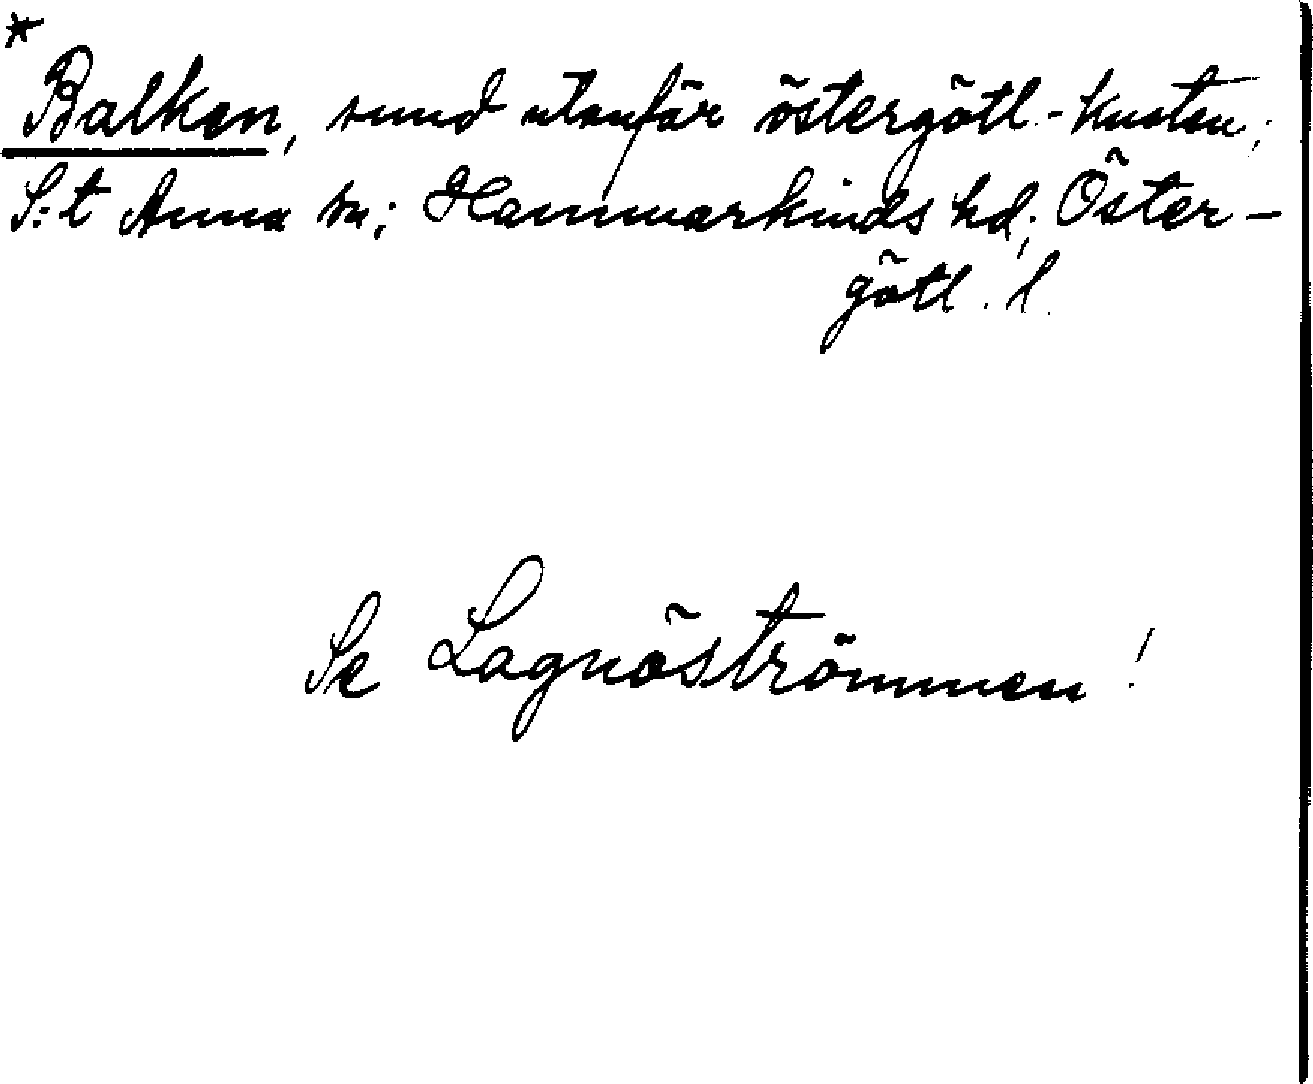 *
Balken, sund utanför östergötl.-kusten;
S:t Anna sn; Hammarkinds hd; Öster-
götl. l.
Se Lagnöströmmen!